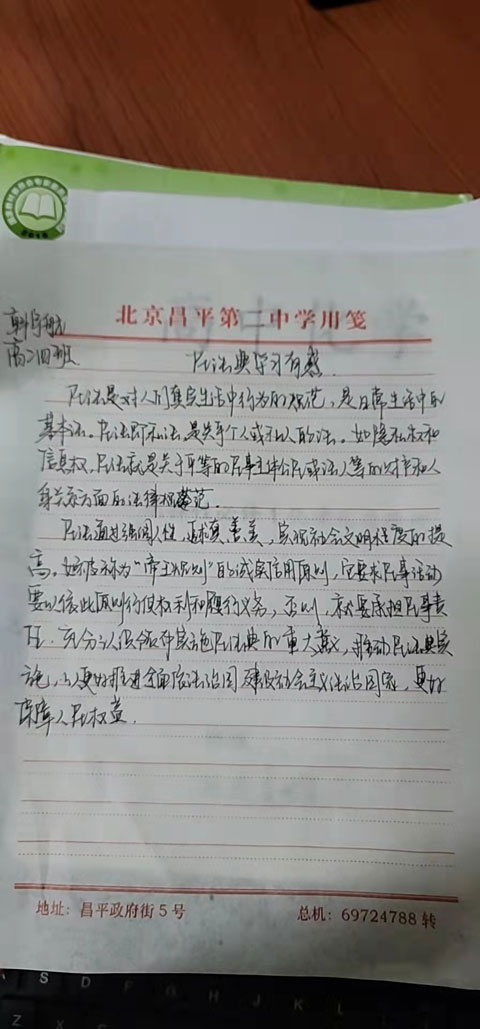 北京昌平第二中学用笺
韩宇航
高二四班
民法典学习有感.
民法是对人们真实生活中行为的规范，是日常生活中的
基本法。民法即私法，是关乎个人或私人的法。如隐私权和
信息权，民法就是关于平等的民事主体公民或法人等的财产和人
身关系方面的法律规范.
民法通过强调人性，追求真、善、美，实现社会文明程度的提
高。如被称为“帝王规则”的诚实信用原则，它要求民事活动
要以依此原则行使权利和履行义务，否则，就要承担民事责
任. 充分认识颁布实施民法典的重大意义，推动民法典实
施，以更好推进全面依法治国建设社会主义法治国家，更好
保障人民权益.
地址：昌平政府街5号
总机：69724788 转
S D F G H J K L
Z X